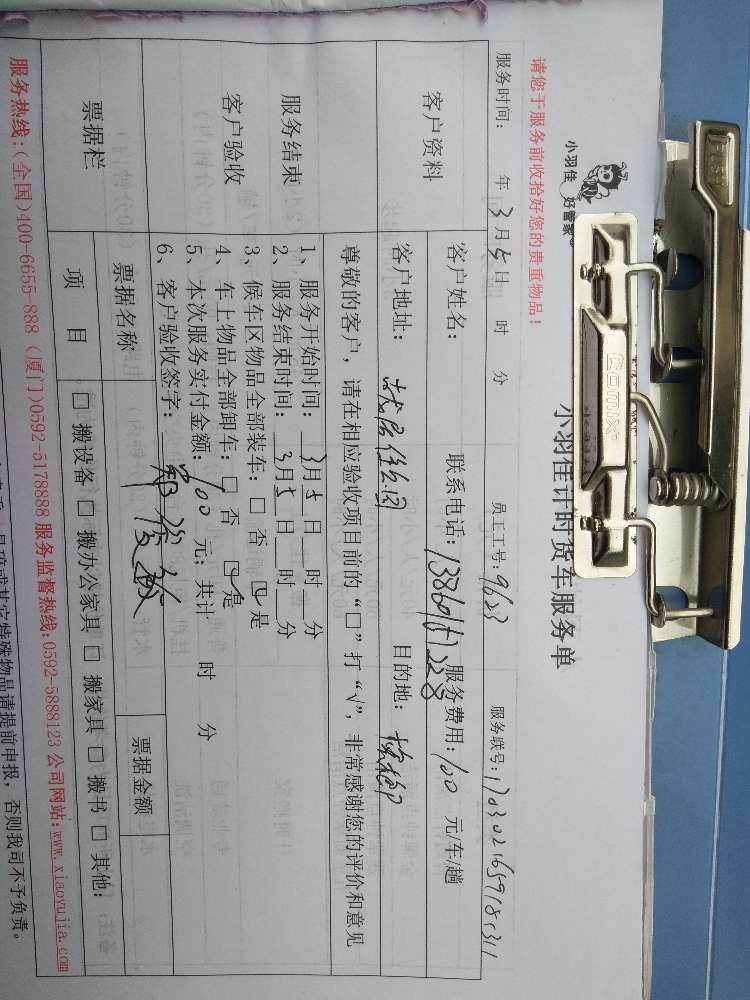 小羽佳 好管家
Comix
小羽佳计时货车服务单
请您于服务前收拾好您的贵重物品！
服务时间： 年 3 月 5 日 时 分 员工工号：9623 服务联号：
客户资料
客户姓名： 联系电话： 服务费用：100 元/车/趟
客户地址： 目的地：
尊敬的客户，请在相应验收项目前的“□”打“√”，非常感谢您的评价和意见
服务结束
客户验收
1、服务开始时间：3月5日 时 分
2、服务结束时间：3月5日 时 分
3、候车区物品全部装车：□ 否 ☑ 是
4、车上物品全部卸车：□ 否 ☑ 是
5、本次服务实付金额：900 元；共计 时 分
6、客户验收签字：
票据栏 票据名称 票据金额
项 目 □ 搬设备 □ 搬办公家具 □ 搬家具 □ 搬书 □ 其他：
服务热线：(全国)400-6655-888 (厦门)0592-5178888 服务监督热线：0592-5888123 公司网站：www.xiaoyujia.com
其它特殊物品请提前申报，否则我司不予负责。